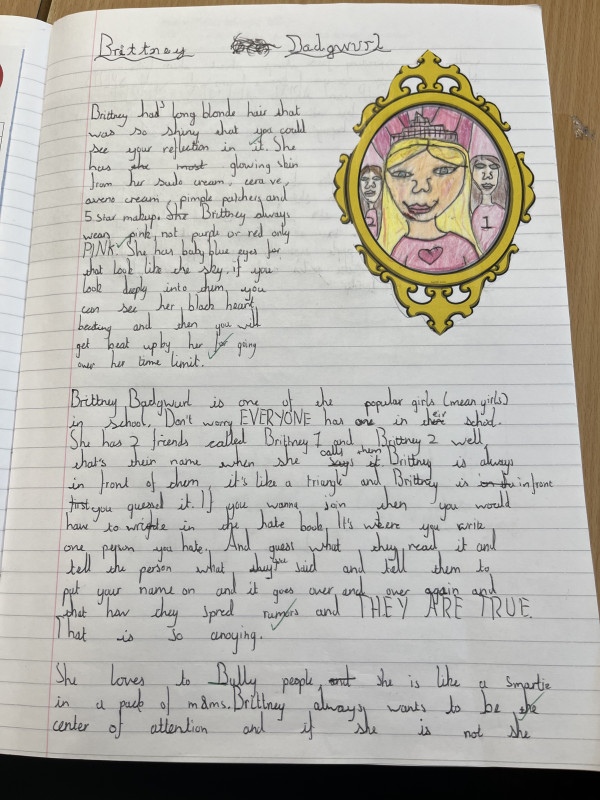 Brittney Badgwurl
Brittney had long blonde hair that
was so shiny that you could
see your reflection in it. She
has the most glowing skin
from her sudo cream, cera ve,
aveno cream, pimple patches and
5 star makeup. She Brittney always
wears pink, not purple or red only
PINK. She has baby blue eyes for
that look like the sky. if you
look deeply into them, you
can see her black heart
beating and then you will
get beat up by her for going
over her time limit.
2
1
Brittney Badgwurl is one of the popular girls (mean girls)
in school. Don't worry EVERYONE has one in their school.
She has 2 friends called Brittney 1 and Brittney 2 well,
that's their name when she calls them. Brittney is always
in front of them, it's like a triangle and Brittney is on the in front
first you guessed it. If you wanna join then you would
have to write in the hate book. It's where you write
one person you hate. And guest what they read it and
tell the person what you said and tell them to
put your name on and it goes over and over again and
that how they spred rumors and THEY ARE TRUE.
That is so anoying.
She loves to Bully people, and she is like a smartie
in a pack of m&ms. Brittney always wants to be the
center of attention and if she is not she